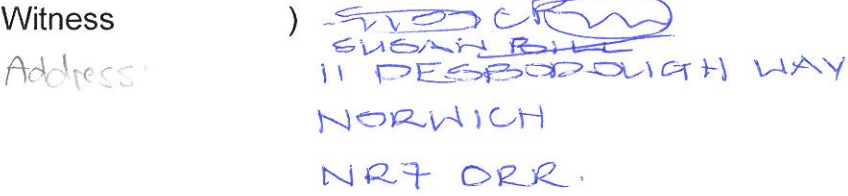 Witness )
SUSAN BILL
Address
11 DESBOROUGH WAY
NORWICH
NR7 0RR.